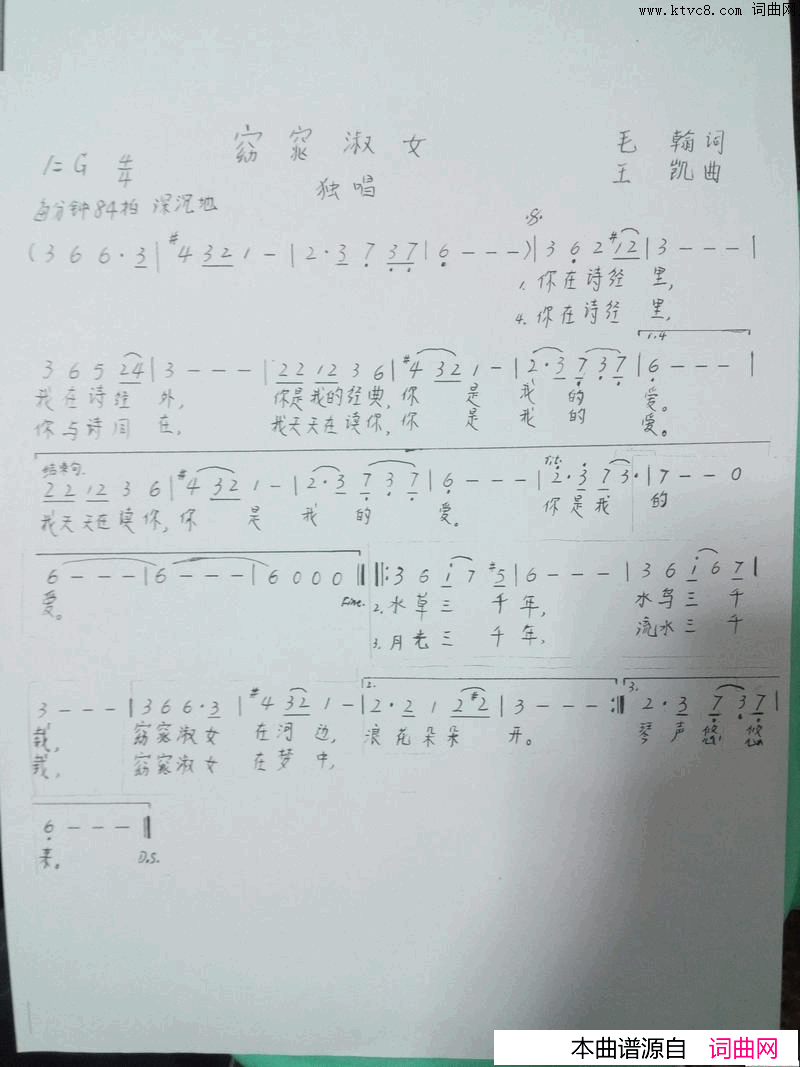 www.ktvc8.com 词曲网
窈窕淑女
毛翰词
1=G 4/4
独唱
王凯曲
每分钟84拍 深沉地
(3 6 6·3|#4 3 2 1 -|2·3 7 3 7|6 - - -)|3 6 2 #1 2|3 - - -|
1.你在诗经里,
4.你在诗经里,
1.4
3 6 5 2 4|3 - - -|2 2 1 2 3 6|#4 3 2 1 -|2·3 7 3 7|6 - - -|
我在诗经外, 你是我的经典,你是我的爱。
你与诗同在, 我天天在读你,你是我的爱。
结束句.
rit.
2 2 1 2 3 6|#4 3 2 1 -|2·3 7 3 7|6 - - -|2·3 7 3·|7 - - 0
我天天在读你,你是我的爱。 你是我的
6 - - -|6 - - -|6 0 0 0‖‖:3 6 i 7 #5|6 - - -|3 6 i 6 7|
爱。 Fine. 2.水草三千年, 水鸟三千
3.月光三千年, 流水三千
2. 3.
3 - - -|3 6 6·3|#4 3 2 1 -|2·2 1 2 #2|3 - - -:‖2·3 7 3 7|
载, 窈窕淑女在河边,浪花朵朵开。 琴声悠悠
载, 窈窕淑女在梦中,
6 - - -‖
来。 D.S.
本曲谱源自 词曲网